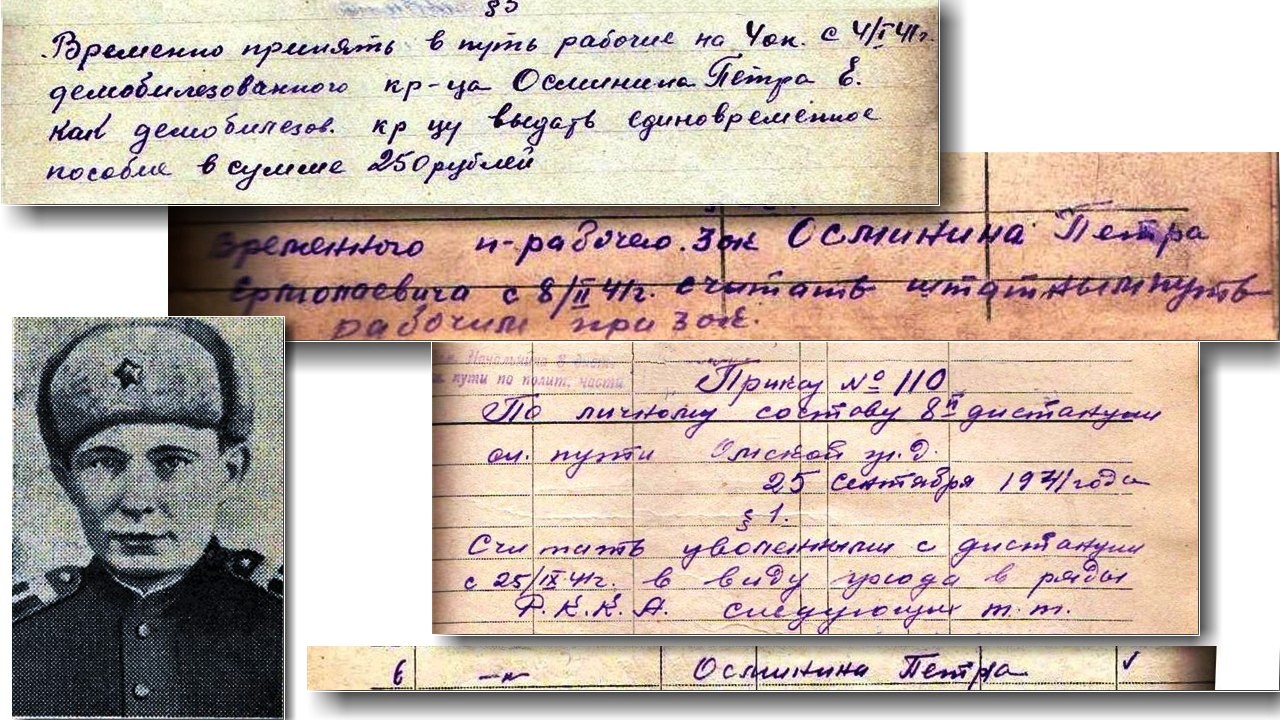 §5
Временно принять в путь рабочие на 4ок. с 4/I 41г.
демобилезованного кр-ца Осминина Петра Е.
как демобилезов. кр цу выдать единовременное
пособие в сумме 250 рублей
Временного п-рабочего. 3ок Осминина Петра
Ермолаевича с 8/II 41г. считать штатным путь
рабочим при 3ок.
Начальника 8 дист.
пути по полит. части
Приказ № 110
По личному составу 8й дистанции
пути Омской ж.д.
25 сентября 1941 года
§ 1.
Считать уволенными с дистанции
с 25/IX 41г. в виду ухода в ряды
Р.К.К.А. следующих т.т.
6 —"— Осминина Петра